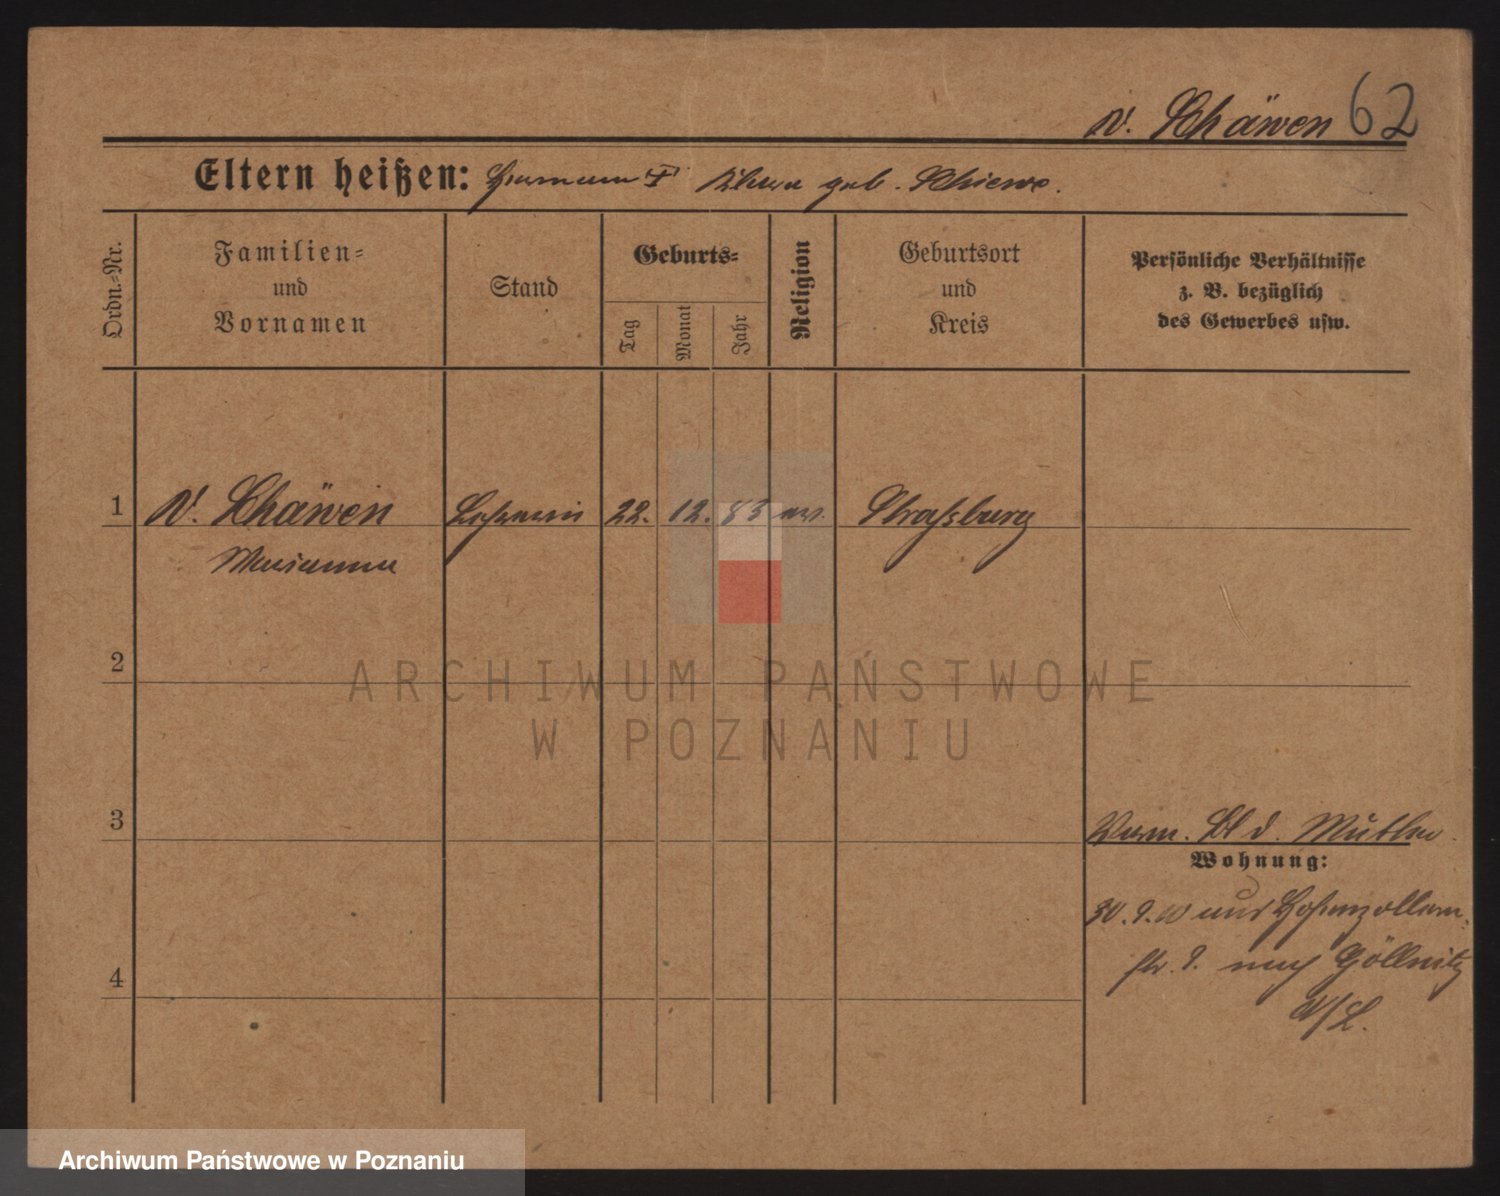 v. Schäwen 62
Eltern heißen: Hermann † geb. Schiewe.
Ordn.-Nr.
Familien-
und
Vornamen
Stand
Geburts-
Tag
Monat
Jahr
Religion
Geburtsort
und
Kreis
Persönliche Verhältnisse
z. B. bezüglich
des Gewerbes usw.
1 v. Schäwen Lehrerin 22. 12. 83 ev. Straßburg
Marianne
2
3
Verm. Bl d. Mutter.
Wohnung:
30. 9. 10 aus Hohenzollern-
str. 9. nach Göllnitz
N/L.
4
ARCHIWUM PAŃSTWOWE
W POZNANIU
Archiwum Państwowe w Poznaniu